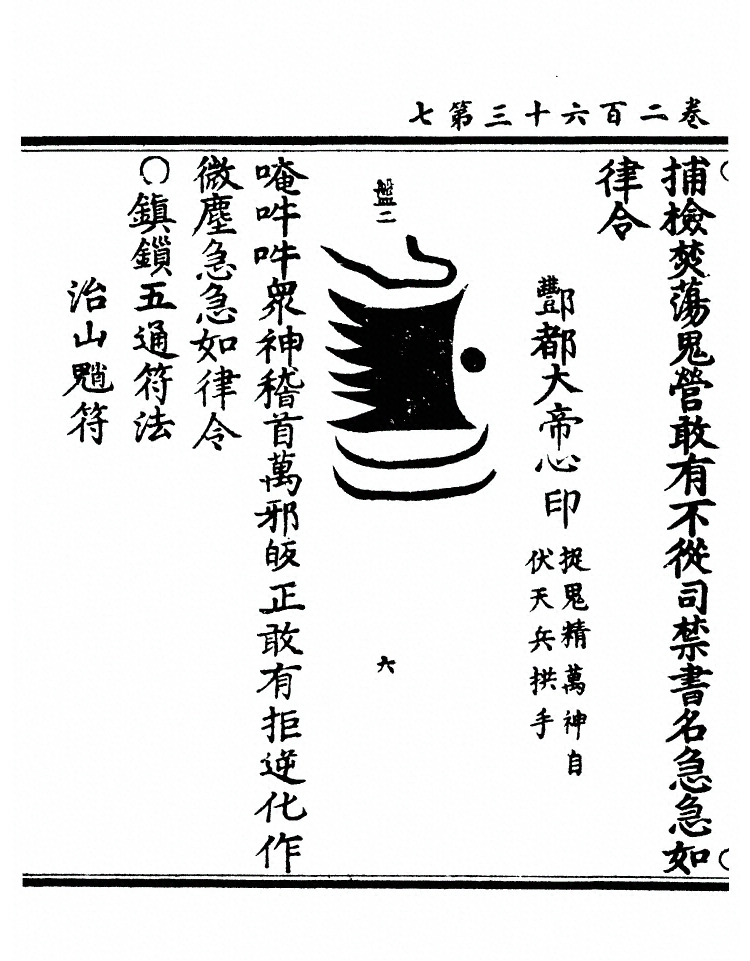 卷二百六十三第七
捕檢焚蕩鬼營敢有不從司禁書名急急如
律令
酆都大帝心印
捉鬼精萬神自
伏天兵拱手
盤二
六
唵吽吽眾神稽首萬邪皈正敢有拒逆化作
微塵急急如律令
○鎮鎖五通符法
治山魈符